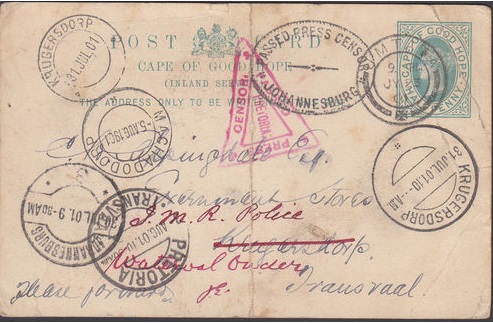 POST CARD
CAPE OF GOOD HOPE
(INLAND SERVICE)
THE ADDRESS ONLY TO BE WRITTEN
OF GOOD HOPE
PENNY
KRUGERSDORP
31 JUL 01
PASSED PRESS CENSOR
JOHANNESBURG
PRESS
CENSOR
PRETORIA
MACHADODORP
5 AUG 1901
KRUGERSDORP
31. JUL. 01. 10-AM
JOHANNESBURG
JUL.01. 9-30AM
PRETORIA
AUG.01.10
Government Stores
I.M.R. Police
Krugersdorp
Waterval Onder
Please forward
Transvaal.